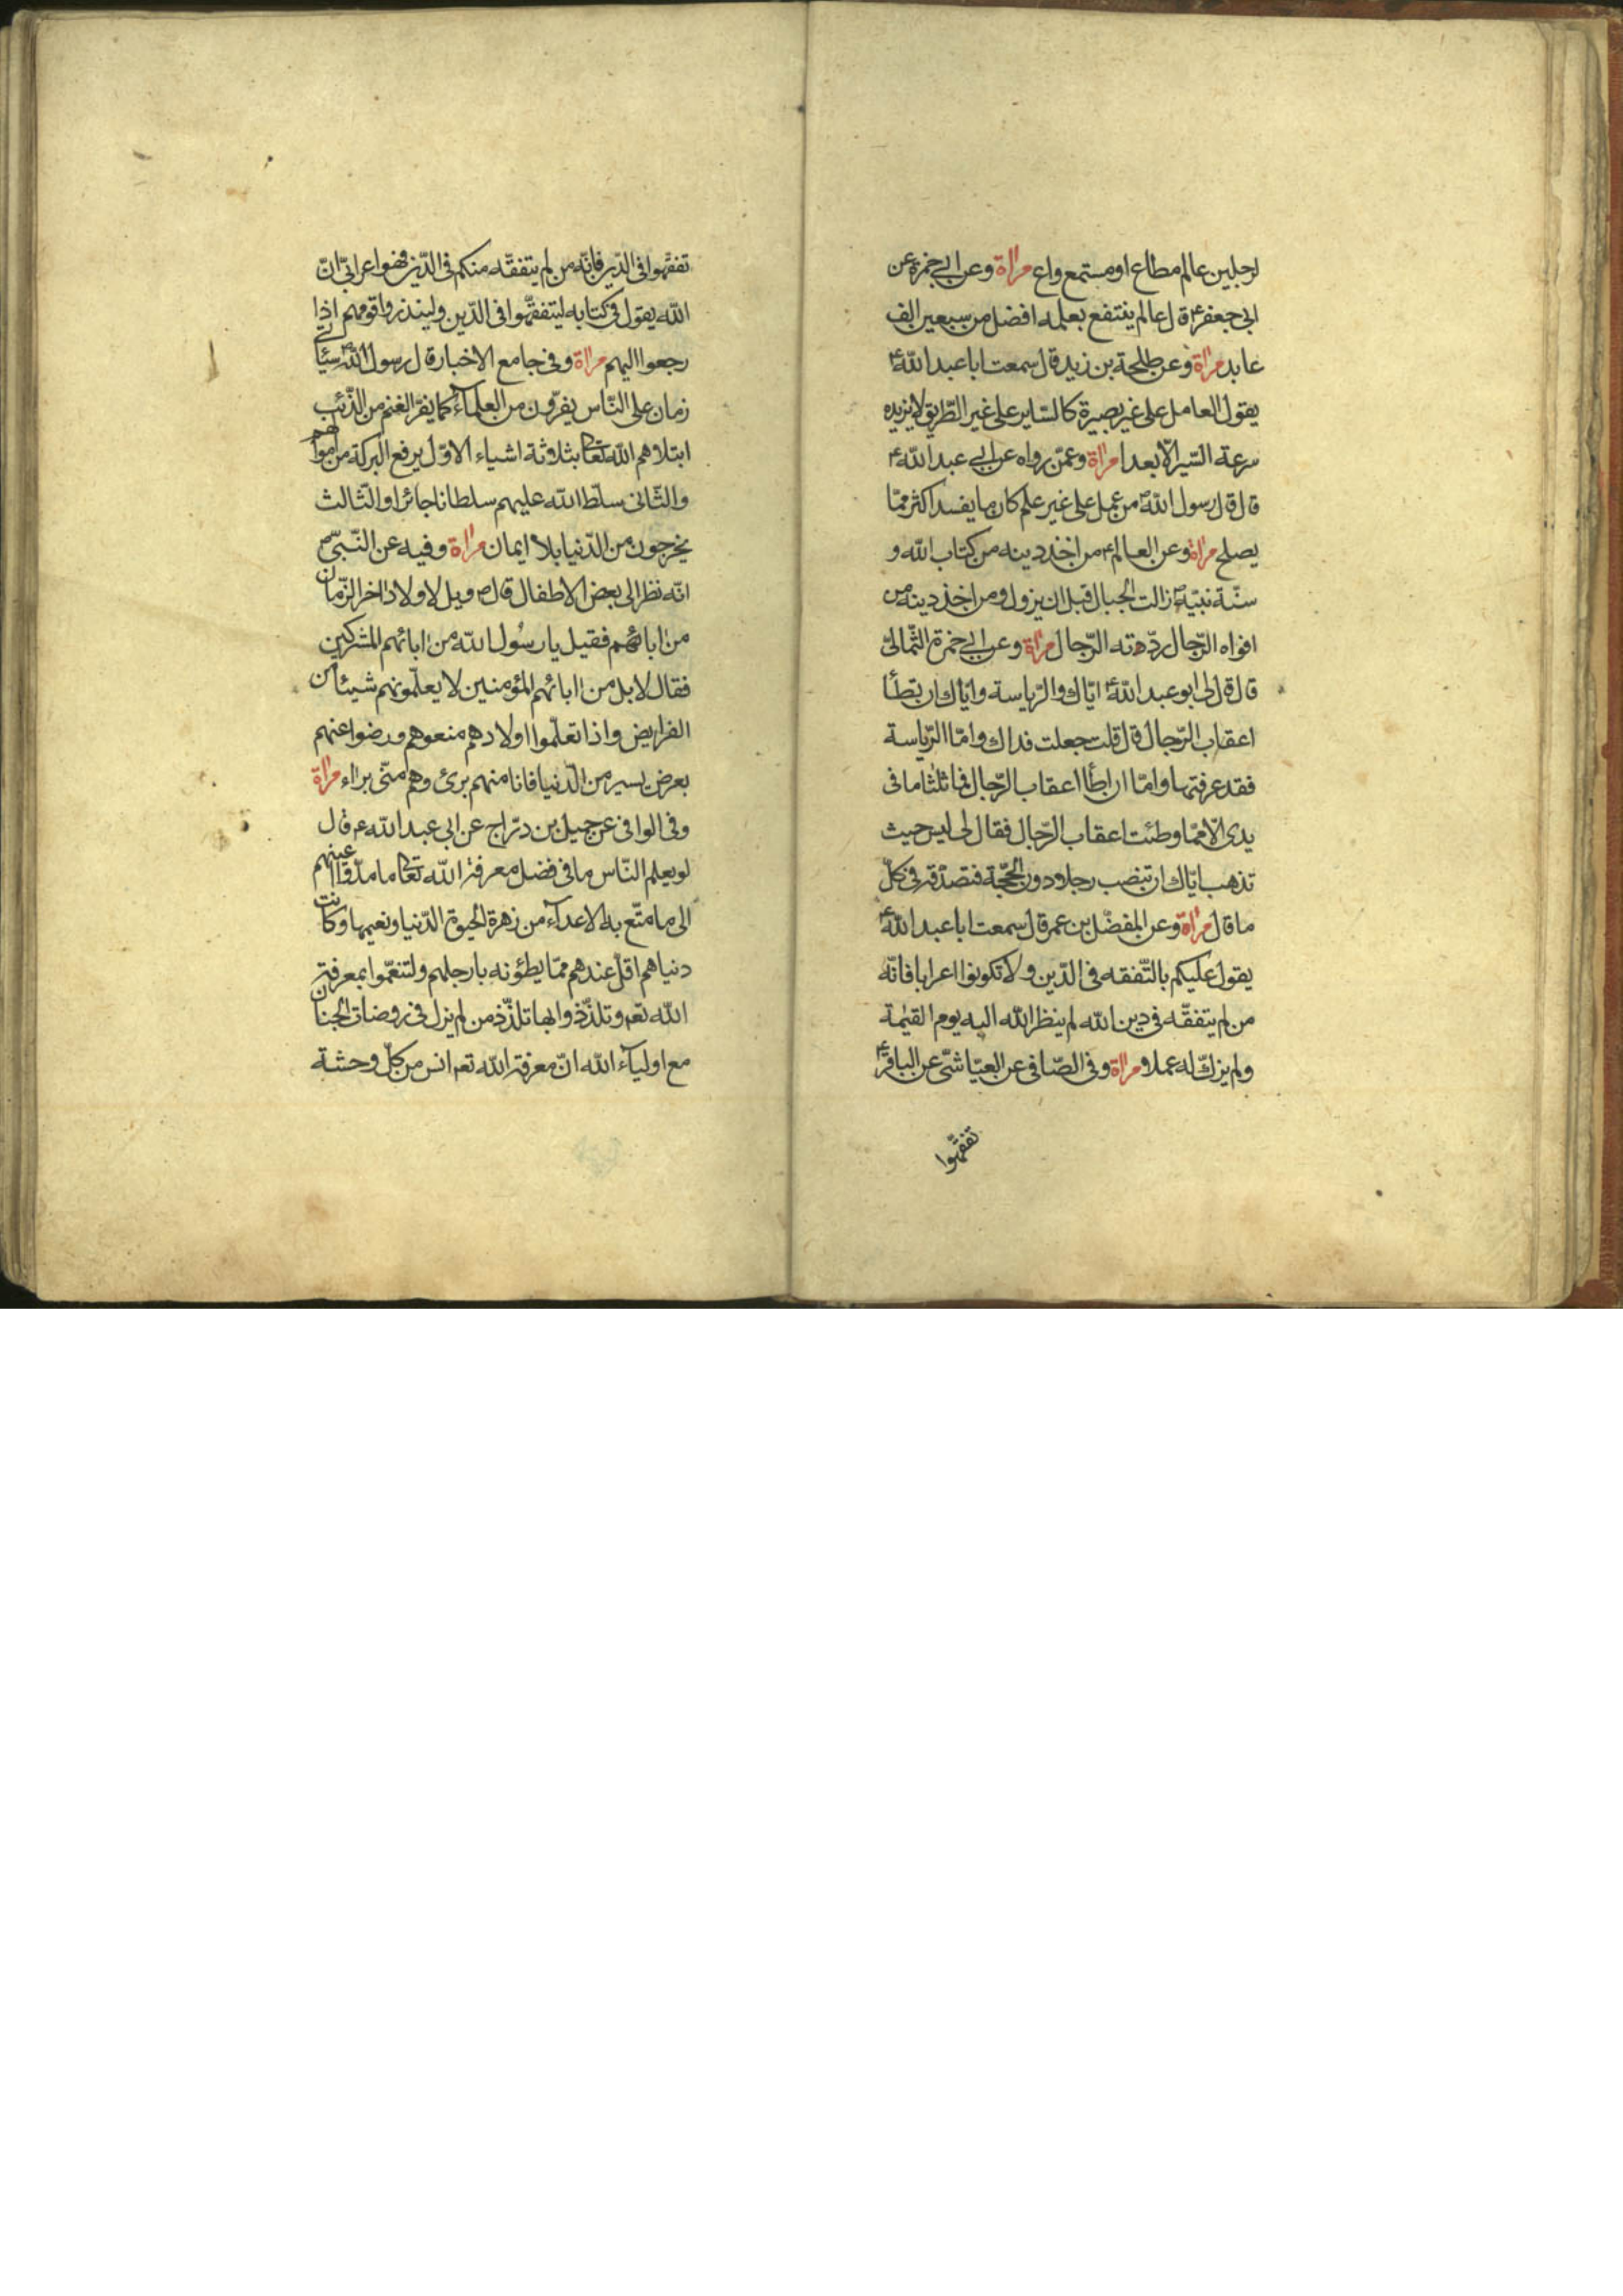 لرجلين عالم مطاع او مستمع واع مراة وعن ابي حمزة عن
ابي جعفر ع قل عالم ينتفع بعلمه افضل من سبعين الف
عابد مراة وعن طلحة بن زيد قال سمعت ابا عبد الله ع
يقول العامل على غير بصيرة كالسّاير على غير الطّريق لا يزيده
سرعة السّير الّا بعدا مراة وعمّن رواه عن ابي عبد الله ع
قال قل رسول الله ص من عمل على غير علم كان ما يفسد اكثر ممّا
يصلح مراة وعن العالم ع من اخذ دينه من كتاب الله و
سنّة نبيّه ص زالت الجبال قبل ان يزول ومن اخذ دينه من
افواه الرّجال ردّهته الرّجال مراة وعن ابي حمزة الثّماليّ
قال قل لى ابو عبد الله ع ايّاك والرّياسة وايّاك ان تطأ
اعقاب الرّجال قل قلت جعلت فداك وامّا الرّياسة
فقد عرفتها وامّا ان اطأ اعقاب الرّجال فما ثلثا ما فى
يدى الّا ممّا وطئت اعقاب الرّجال فقال لى ليس حيث
تذهب ايّاك ان تنصب رجلا دون الحجّة فتصدّقه فى كلّ
ما قال مراة وعن المفضّل بن عمر قل سمعت ابا عبد الله ع
يقول عليكم بالتّفقه فى الدّين ولا تكونوا اعرابا فانّه
من لم يتفقّه فى دين الله لم ينظر الله اليه يوم القيٰمة
ولم يزكّ له عملا و مراة وفى الصّافى عن العيّاشىّ عن الباقر ع
تفقّهوا
تفقّهوا فى الدّين فانّه من لم يتفقّه منكم فى الدّين فهو اعرابىّ انّ
الله يقول فى كتابه ليتفقّهوا فى الدّين ولينذروا قومهم اذا
رجعوا اليهم مراة وفى جامع الاخبار قل رسول الله ص سيأتى
زمان على النّاس يفرّون من العلمآء كما يفرّ الغنم من الذّئب
ابتلاهم الله تعالى بثلاثة اشياء الاوّل يرفع البركة من اموالهم
والثّانى سلّط الله عليهم سلطانا جائرا والثّالث
يخرجون من الدّنيا بلا ايمان مراة وفيه عن النّبىّ ص
انّه نظر الى بعض الاطفال قال ص ويل لاولاد اخر الزّمان
من ابائهم فقيل يا رسُول الله من ابائهم المشركين
فقال لا بل من ابائهم المؤمنين لا يعلّمونهم شيئا من
الفرايض واذا تعلّموا اولادهم منعوهم ورضوا عنهم
بعرض يسير من الدّنيا فانا منهم برئ وهم منّى براء مراة
وفى الوافى عن جميل بن درّاج عن ابى عبد الله ع قال
لو يعلم النّاس ما فى فضل معرفة الله تعالى ما مدّوا اعينهم
الى ما متّع به الاعدآء من زهرة الحيوة الدّنيا ونعيمها وكانت
دنياهم اقلّ عندهم ممّا يطئونه بارجلهم ولتنعّموا بمعرفة
الله تعه وتلذّذوا بها تلذّذ من لم يزل فى روضات الجنان
مع اوليآء الله انّ معرفة الله تعه انس من كلّ وحشة